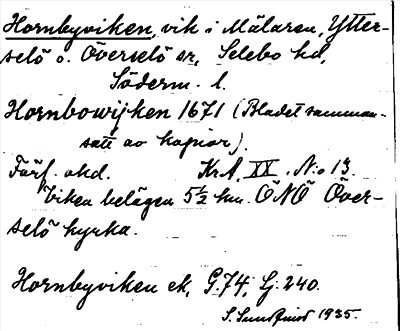 Hornbyviken, vik i Mälaren, Ytter-
selö o. Överselö sr, Selebo hd,
Söderm. l.
Hornbowijken 1671 (Bladet samman-
satt av kopior).
Förf. okd. Kr.A. XX. N:o 13.
Viken belägen 5½ km. ÖNÖ Över-
selö kyrka.
Hornbyviken ek, G.74, Lj. 240.
S. Sundqvist 1935.